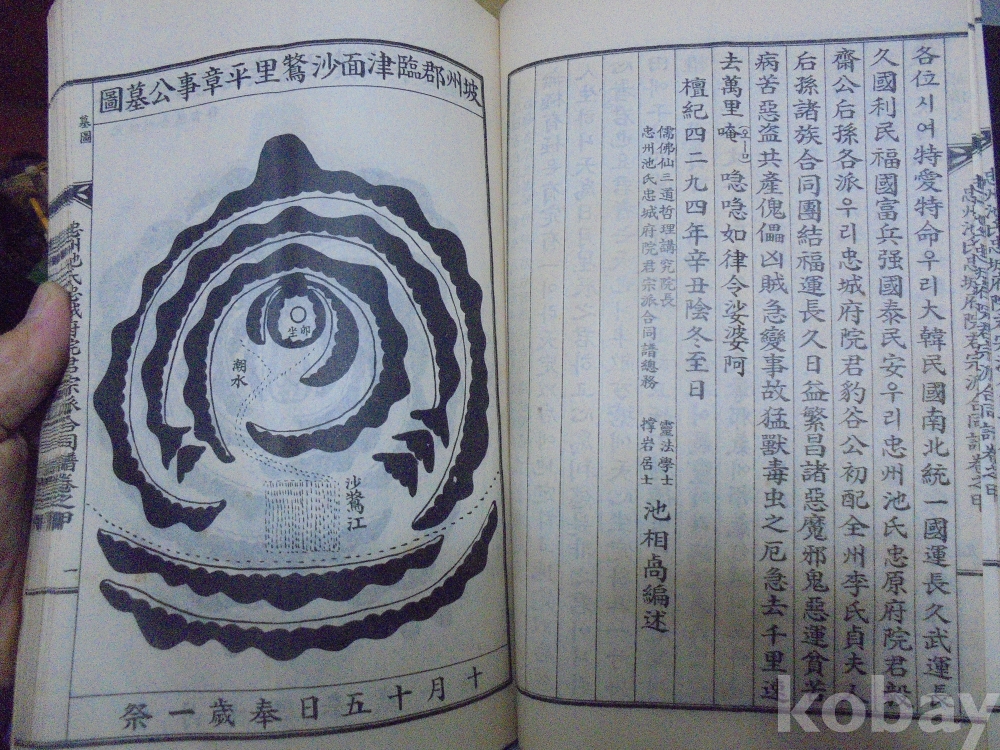 各位시여特愛特命우리大韓民國南北統一國運長久武運長
久國利民福國富兵强國泰民安우리忠州池氏忠原府院君毅
齋公后孫各派우리忠城府院君豹谷公初配全州李氏貞夫人
后孫諸族合同團結福運長久日益繁昌諸惡魔邪鬼惡運貧苦
病苦惡盜共產傀儡凶賊急變事故猛獸毒虫之厄急去千里遠
去萬里唵오ー口喼喼如律令娑婆阿
檀紀四二九四年辛丑陰冬至日
儒佛仙三道哲理講究院長
忠州池氏忠城府院君宗派合同譜總務
靈法學士
撑岩居士
池相卨編述
坡州郡臨津面沙鶩里平章事公墓圖
卯
坐
潮水
沙鶩江
十月十五日奉歲一祭
墓圖
忠州池氏忠城府院君宗派合同譜卷之甲
一
kobay